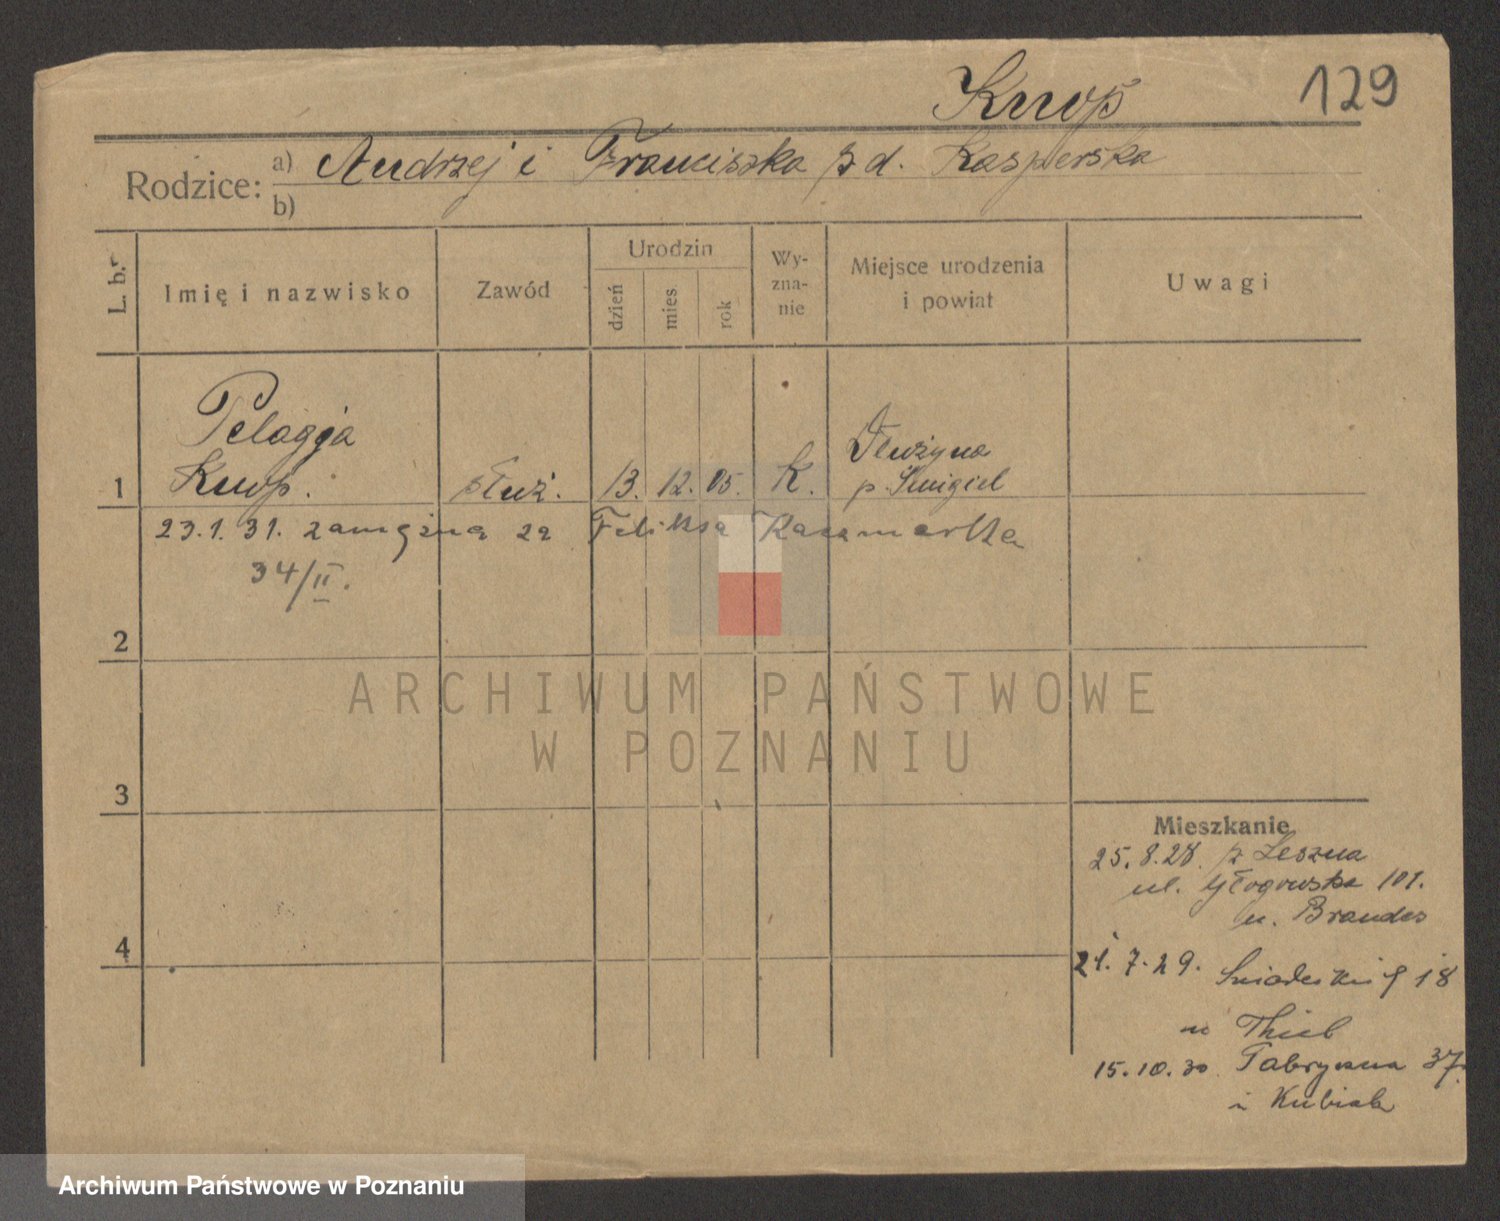 Knop 129
Rodzice: a) Andrzej i Franciszka z d. Kasperska
b)
L. b. Imię i nazwisko Zawód Urodzin dzień mies rok Wy-zna-nie Miejsce urodzenia i powiat Uwagi
Pelagja
1 Knop. służ. 13. 12. 05. K. Dłużyna
p. Śmigiel
23.1.31. zamężna za Feliksa Kaczmarka
34/II.
2
ARCHIWUM PAŃSTWOWE
W POZNANIU
3
Mieszkanie
25.8.28. z Leszna
ul. Głogowska 101.
u. Brandes
4
21.7.29. Śniadeckich 18
u Thiel
15.10.30 Fabryczna 37.
Kubiak
Archiwum Państwowe w Poznaniu